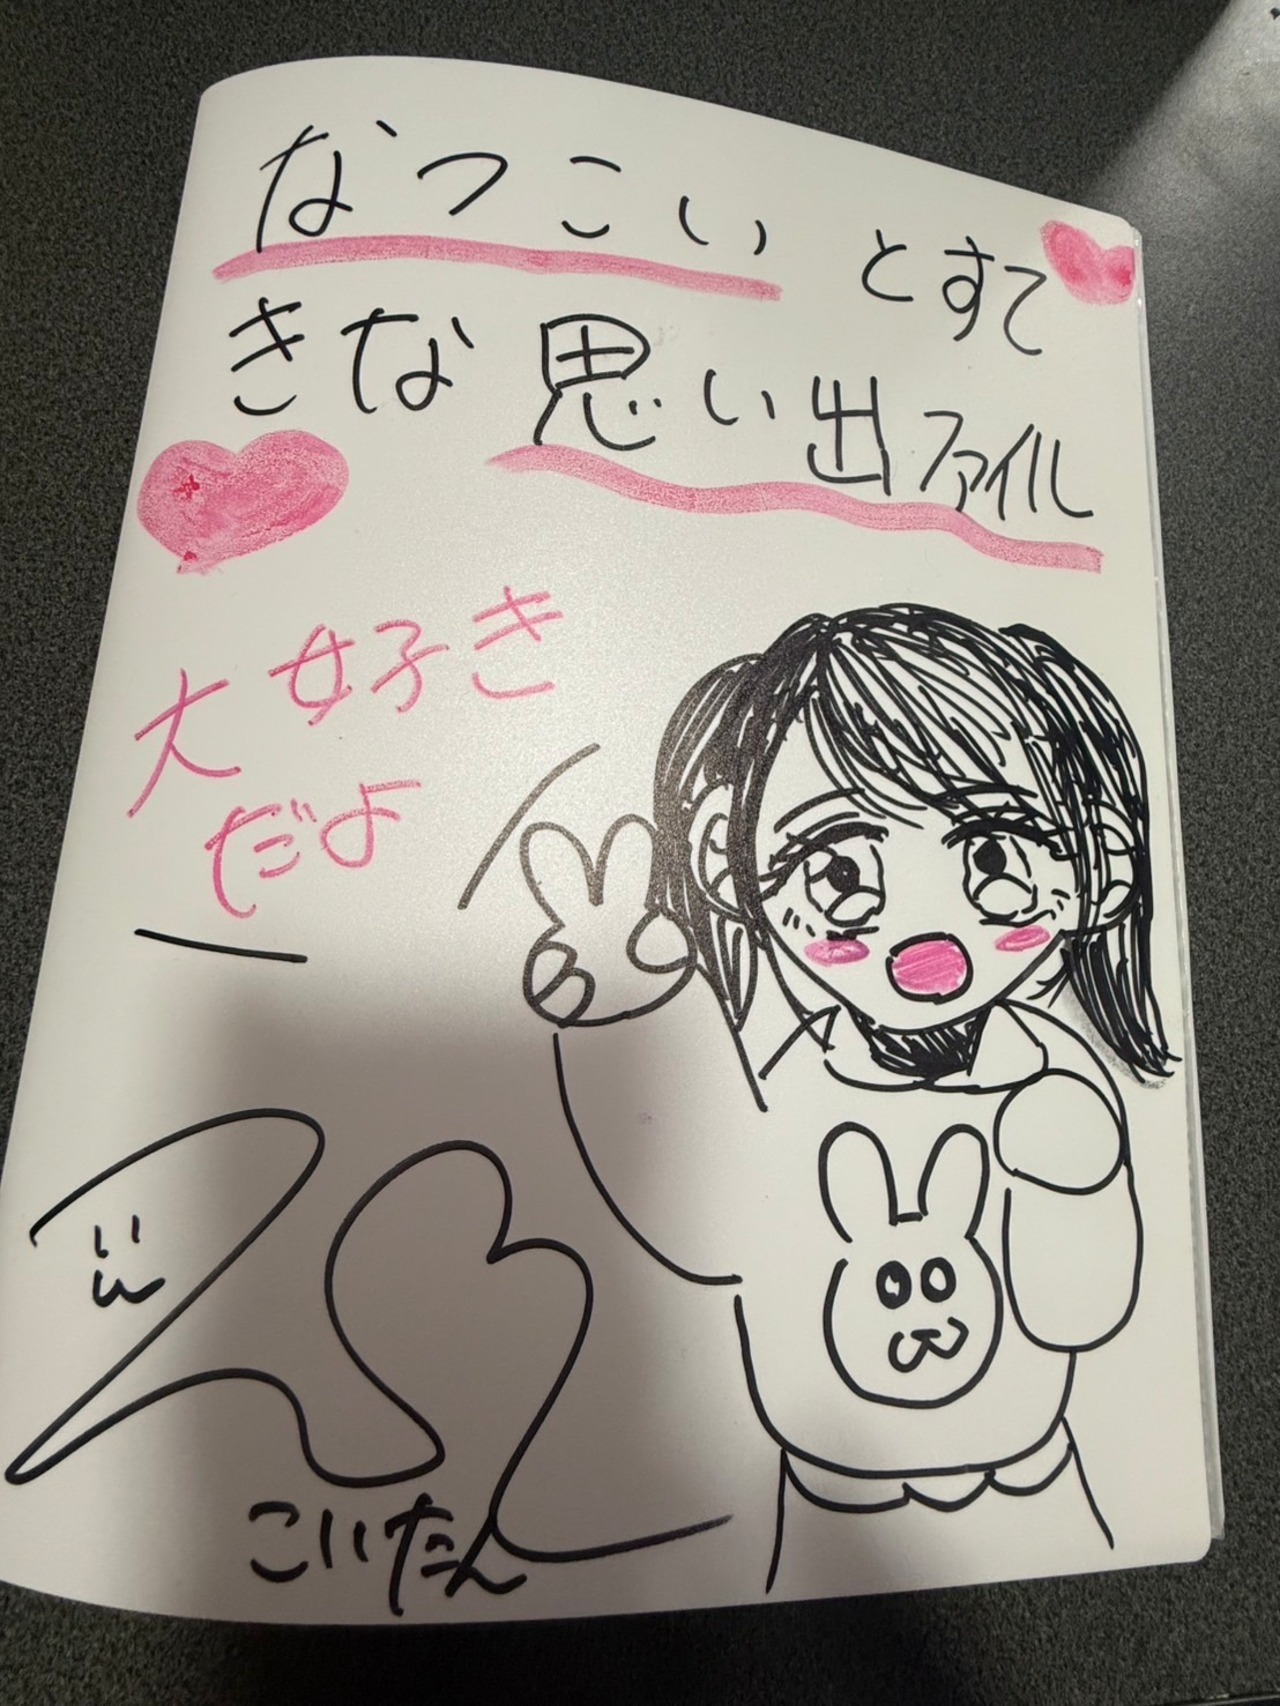 なつこい とすて
きな 思い出ファイル
大好き
だよ
こいたん